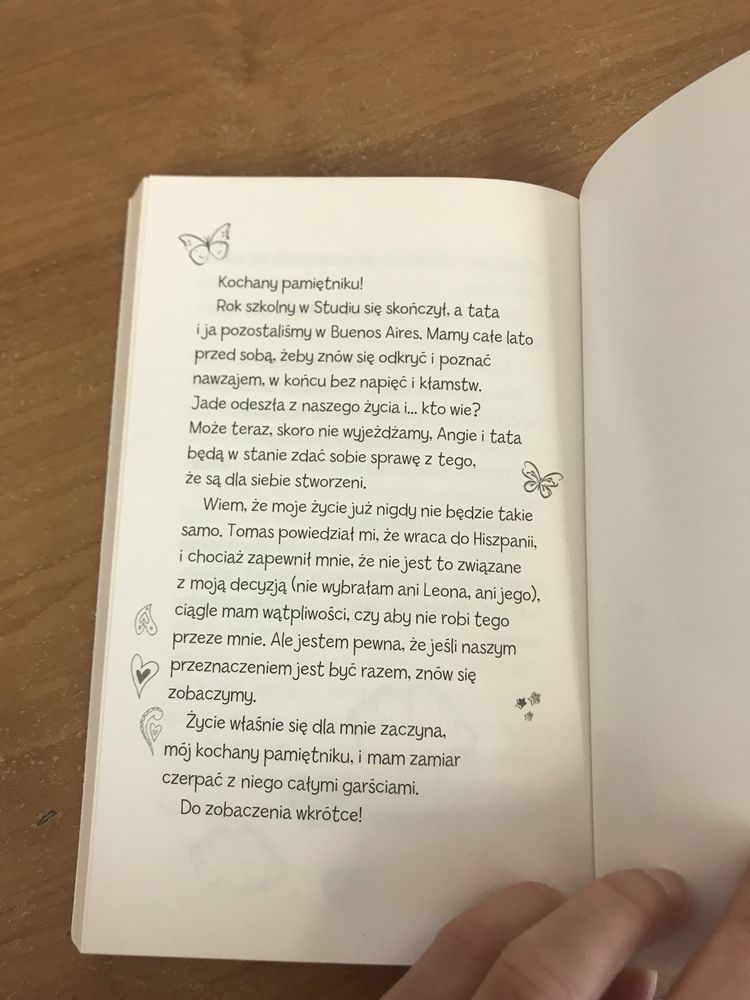 Kochany pamiętniku!
Rok szkolny w Studiu się skończył, a tata
i ja pozostaliśmy w Buenos Aires. Mamy całe lato
przed sobą, żeby znów się odkryć i poznać
nawzajem, w końcu bez napięć i kłamstw.
Jade odeszła z naszego życia i... kto wie?
Może teraz, skoro nie wyjeżdżamy, Angie i tata
będą w stanie zdać sobie sprawę z tego,
że są dla siebie stworzeni.
Wiem, że moje życie już nigdy nie będzie takie
samo. Tomas powiedział mi, że wraca do Hiszpanii,
i chociaż zapewnił mnie, że nie jest to związane
z moją decyzją (nie wybrałam ani Leona, ani jego),
ciągle mam wątpliwości, czy aby nie robi tego
przeze mnie. Ale jestem pewna, że jeśli naszym
przeznaczeniem jest być razem, znów się
zobaczymy.
Życie właśnie się dla mnie zaczyna,
mój kochany pamiętniku, i mam zamiar
czerpać z niego całymi garściami.
Do zobaczenia wkrótce!